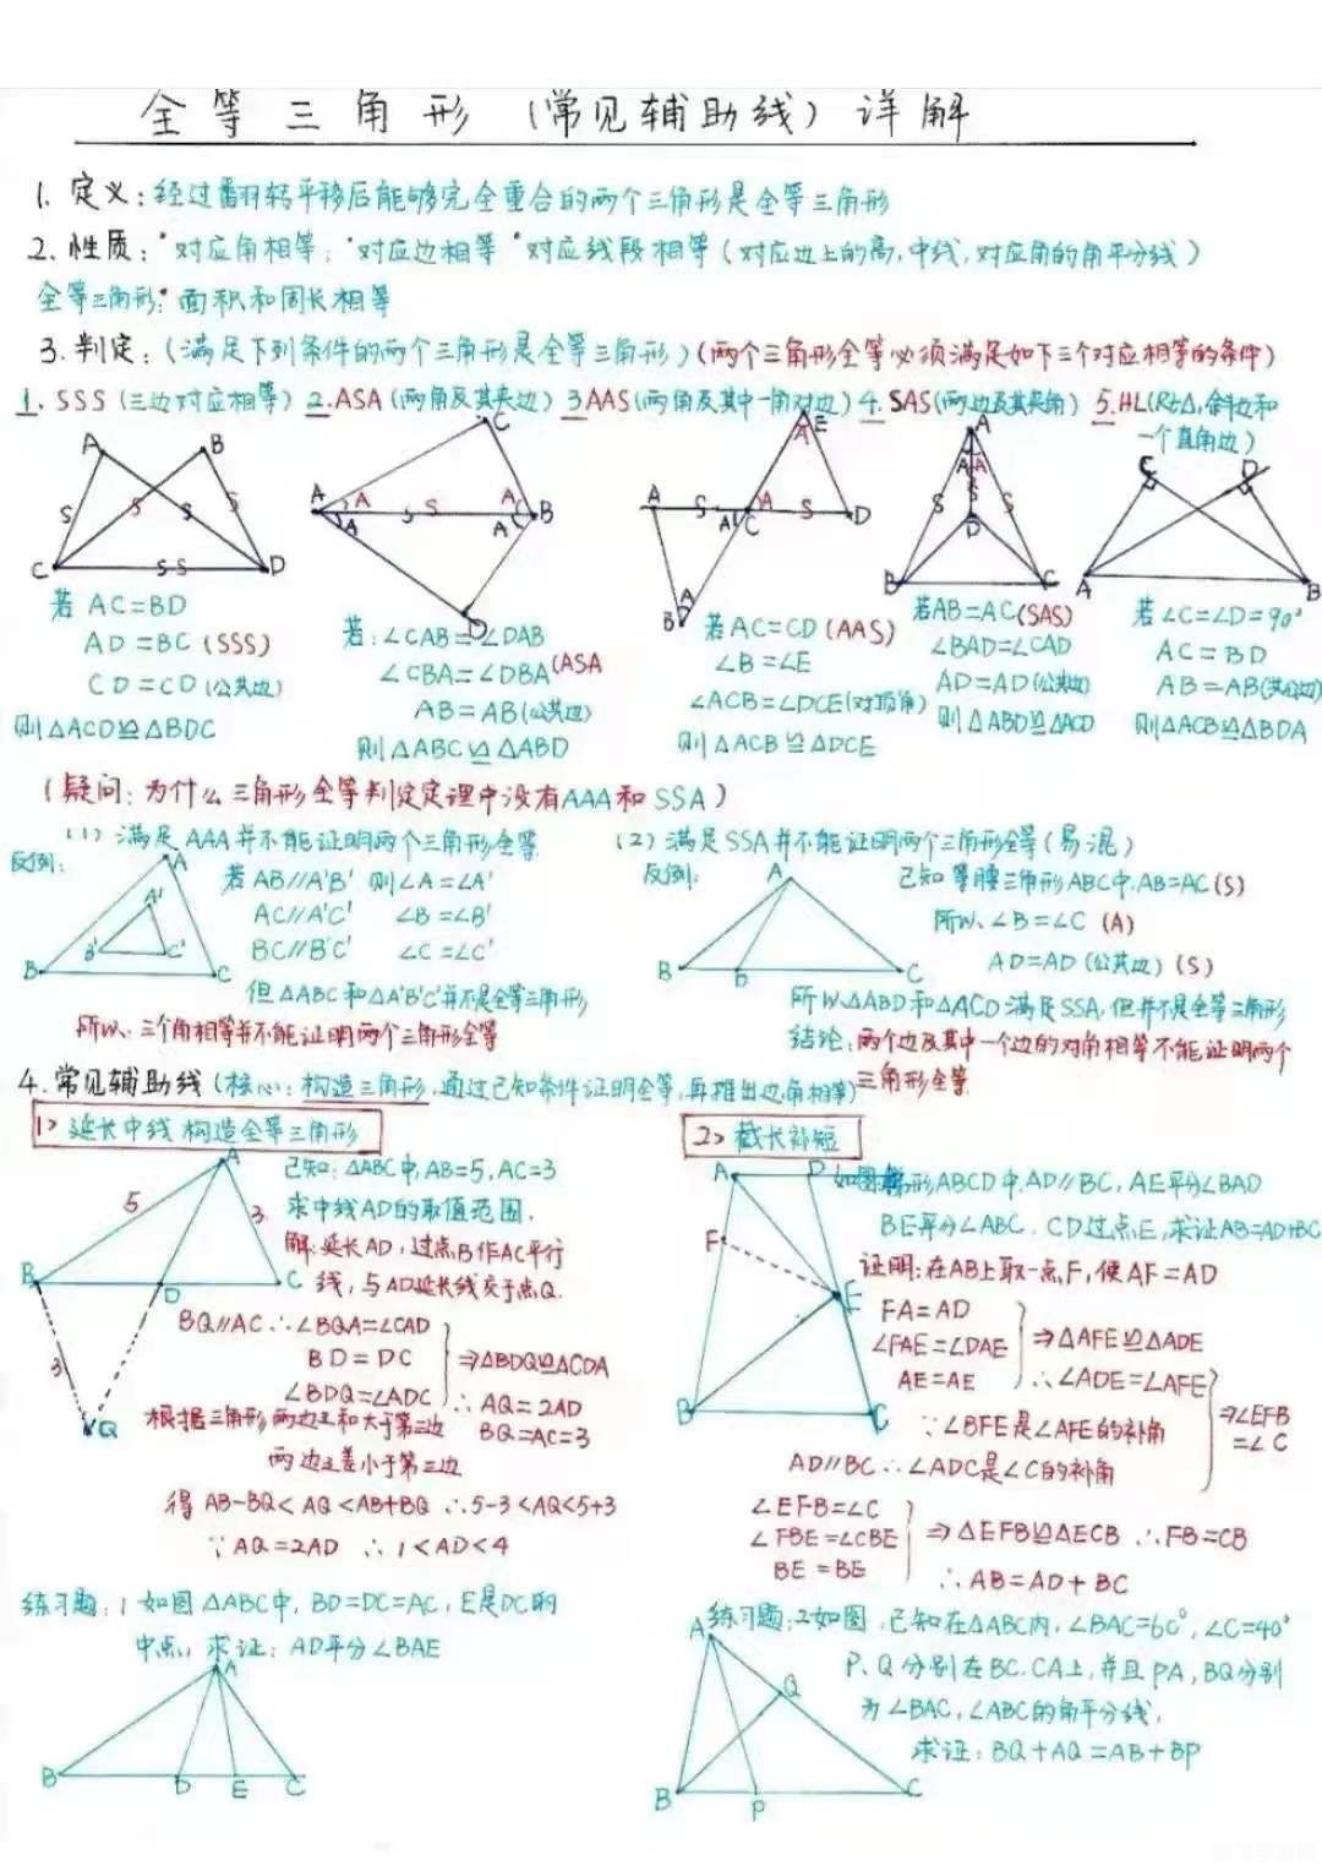 全等三角形(常见辅助线)详解
1. 定义:经过翻转平移后能够完全重合的两个三角形是全等三角形
2. 性质:·对应角相等;·对应边相等·对应线段相等(对应边上的高,中线,对应角的角平分线)
全等三角形:·面积和周长相等
3. 判定:(满足下列条件的两个三角形是全等三角形)(两个三角形全等必须满足如下三个对应相等的条件)
1. SSS(三边对应相等) 2. ASA(两角及其夹边) 3 AAS(两角及其中一角对边) 4. SAS(两边及其夹角) 5. HL(Rt△,斜边和
一个直角边)
A B S S S S C S S D
A C A A S S A A B D
A S A C A S D A E A B
A A A S S S D B C
C D A B
若 AC=BD
AD=BC (SSS)
CD=CD(公共边)
则△ACD≌△BDC
若:∠CAB=∠DAB
∠CBA=∠DBA(ASA
AB=AB(公共边)
则△ABC≌△ABD
若AC=CD(AAS)
∠B=∠E
∠ACB=∠DCE(对顶角)
则△ACB≌△DCE
若AB=AC(SAS)
∠BAD=∠CAD
AD=AD(公共边)
则△ABD≌△ACD
若∠C=∠D=90°
AC=BD
AB=AB(共公边)
则△ACB≌△BDA
(疑问:为什么三角形全等判定定理中没有AAA和SSA)
(1)满足AAA并不能证明两个三角形全等
反例:
A A' B' C' B C
若AB//A'B' 则∠A=∠A'
AC//A'C' ∠B=∠B'
BC//B'C' ∠C=∠C'
但△ABC和△A'B'C'并不是全等三角形
所以、三个角相等并不能证明两个三角形全等
(2)满足SSA并不能证明两个三角形全等(易混)
反例:
A B D C
已知等腰三角形ABC中,AB=AC(S)
所以、∠B=∠C (A)
AD=AD(公共边)(S)
所以△ABD和△ACD满足SSA,但并不是全等三角形
结论:两个边及其中一个边的对角相等不能证明两个
三角形全等
4. 常见辅助线(核心:构造三角形,通过已知条件证明全等,再推出边,角相等)
1> 延长中线 构造全等三角形
A 5 3 B D C 3 Q
已知:△ABC中,AB=5,AC=3
求中线AD的取值范围.
解:延长AD,过点B作AC平行
线,与AD延长线交于点Q.
BQ//AC ∴∠BQA=∠CAD
BD=DC ⇒△BDQ≌△CDA
∠BDQ=∠ADC ∴AQ=2AD
根据三角形两边之和大于第三边 BQ=AC=3
两边之差小于第三边
得 AB-BQ<AQ<AB+BQ ∴5-3<AQ<5+3
∵AQ=2AD ∴1<AD<4
练习题:1如图△ABC中,BD=DC=AC,E是DC的
中点,求证:AD平分∠BAE
A B D E C
2> 截长补短
A D F E B C
如图梯形ABCD中,AD//BC,AE平分∠BAD
BE平分∠ABC.CD过点E,求证AB=AD+BC
证明:在AB上取一点F,使AF=AD
FA=AD
∠FAE=∠DAE ⇒△AFE≌△ADE
AE=AE ∴∠ADE=∠AFE
∵∠BFE是∠AFE的补角 ⇒∠EFB
=∠C
AD//BC ∴∠ADC是∠C的补角
∠EFB=∠C
∠FBE=∠CBE ⇒△EFB≌△ECB ∴FB=CB
BE=BE ∴AB=AD+BC
练习题:2如图,已知在△ABC内,∠BAC=60°,∠C=40°
P、Q分别在BC.CA上,并且PA,BQ分别
为∠BAC,∠ABC的角平分线,
求证:BQ+AQ=AB+BP
A Q B P C